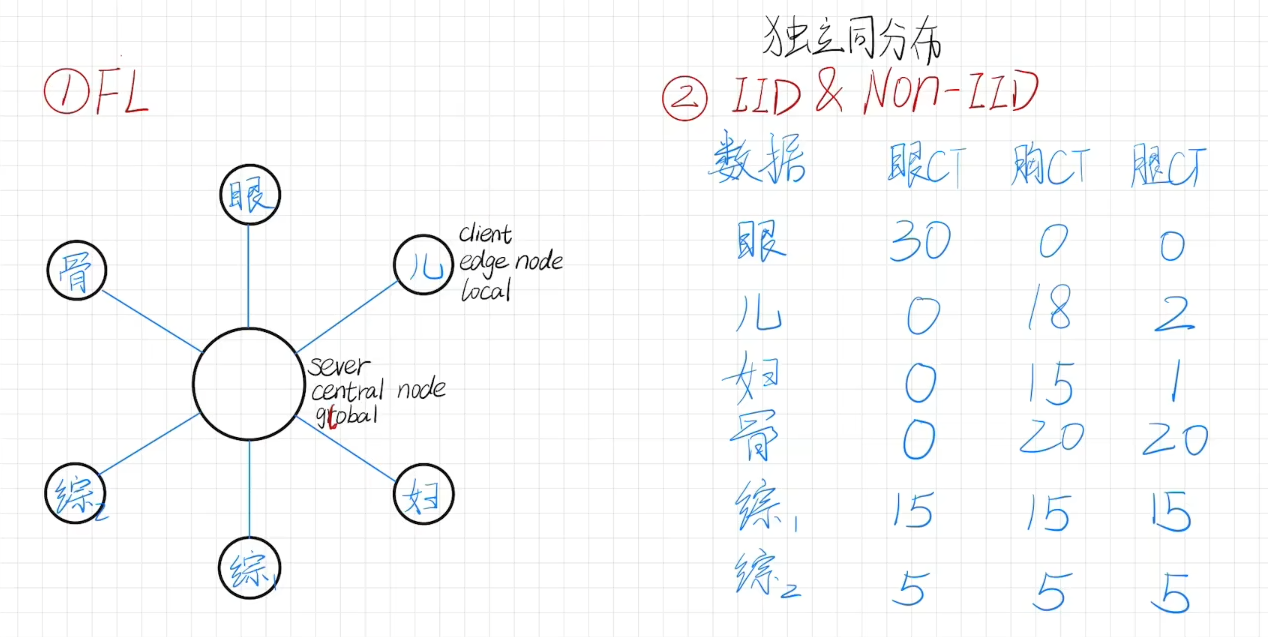 ① FL
眼
骨
儿
client
edge node
local
sever
central node
global
综2
妇
综1
独立同分布
② IID & Non-IID
数据 眼CT 胸CT 腿CT
眼 30 0 0
儿 0 18 2
妇 0 15 1
骨 0 20 20
综1 15 15 15
综2 5 5 5